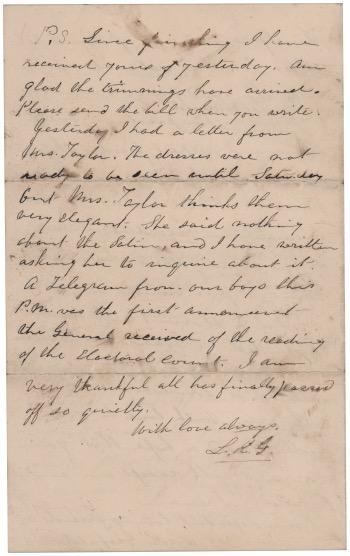 P.S. Since finishing I have
received yours of yesterday. Am
glad the trimmings have arrived.
Please send the bill when you write.
Yesterday I had a letter from
Mrs. Taylor. The dresses were not
ready to be seen until Saturday
but Mrs. Taylor thinks them
very elegant. She said nothing
about the Satin, and I have written
asking her to inquire about it.
A Telegram from our boys this
P.M. was the first announcement
the General received of the reading
of the Electoral Count. I am
very thankful all has finally passed
off so quietly.
With love always,
L.R.G.